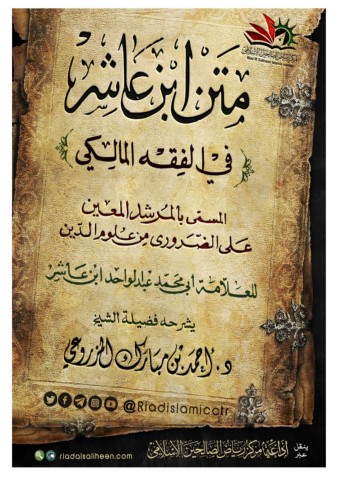 متن ابن عاشر
في الفقه المالكي
المسمى بالمرشد المعين
على الضروري من علوم الدين
للعلامة أبي محمد عبدالواحد ابن عاشر
يشرحه فضيلة الشيخ
د. أحمد بن مبارك المزروعي
@Riadislamicctr
ينقل عبر
إذاعة مركز رياض الصالحين الإسلامي
riadalsaliheen.com